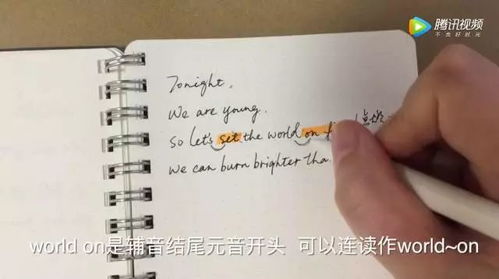 腾讯视频
不负好时光
Tonight,
We are young.
So let's set the world on
点燃
we can burn brighter tha
world on是辅音结尾元音开头 可以连读作world~on